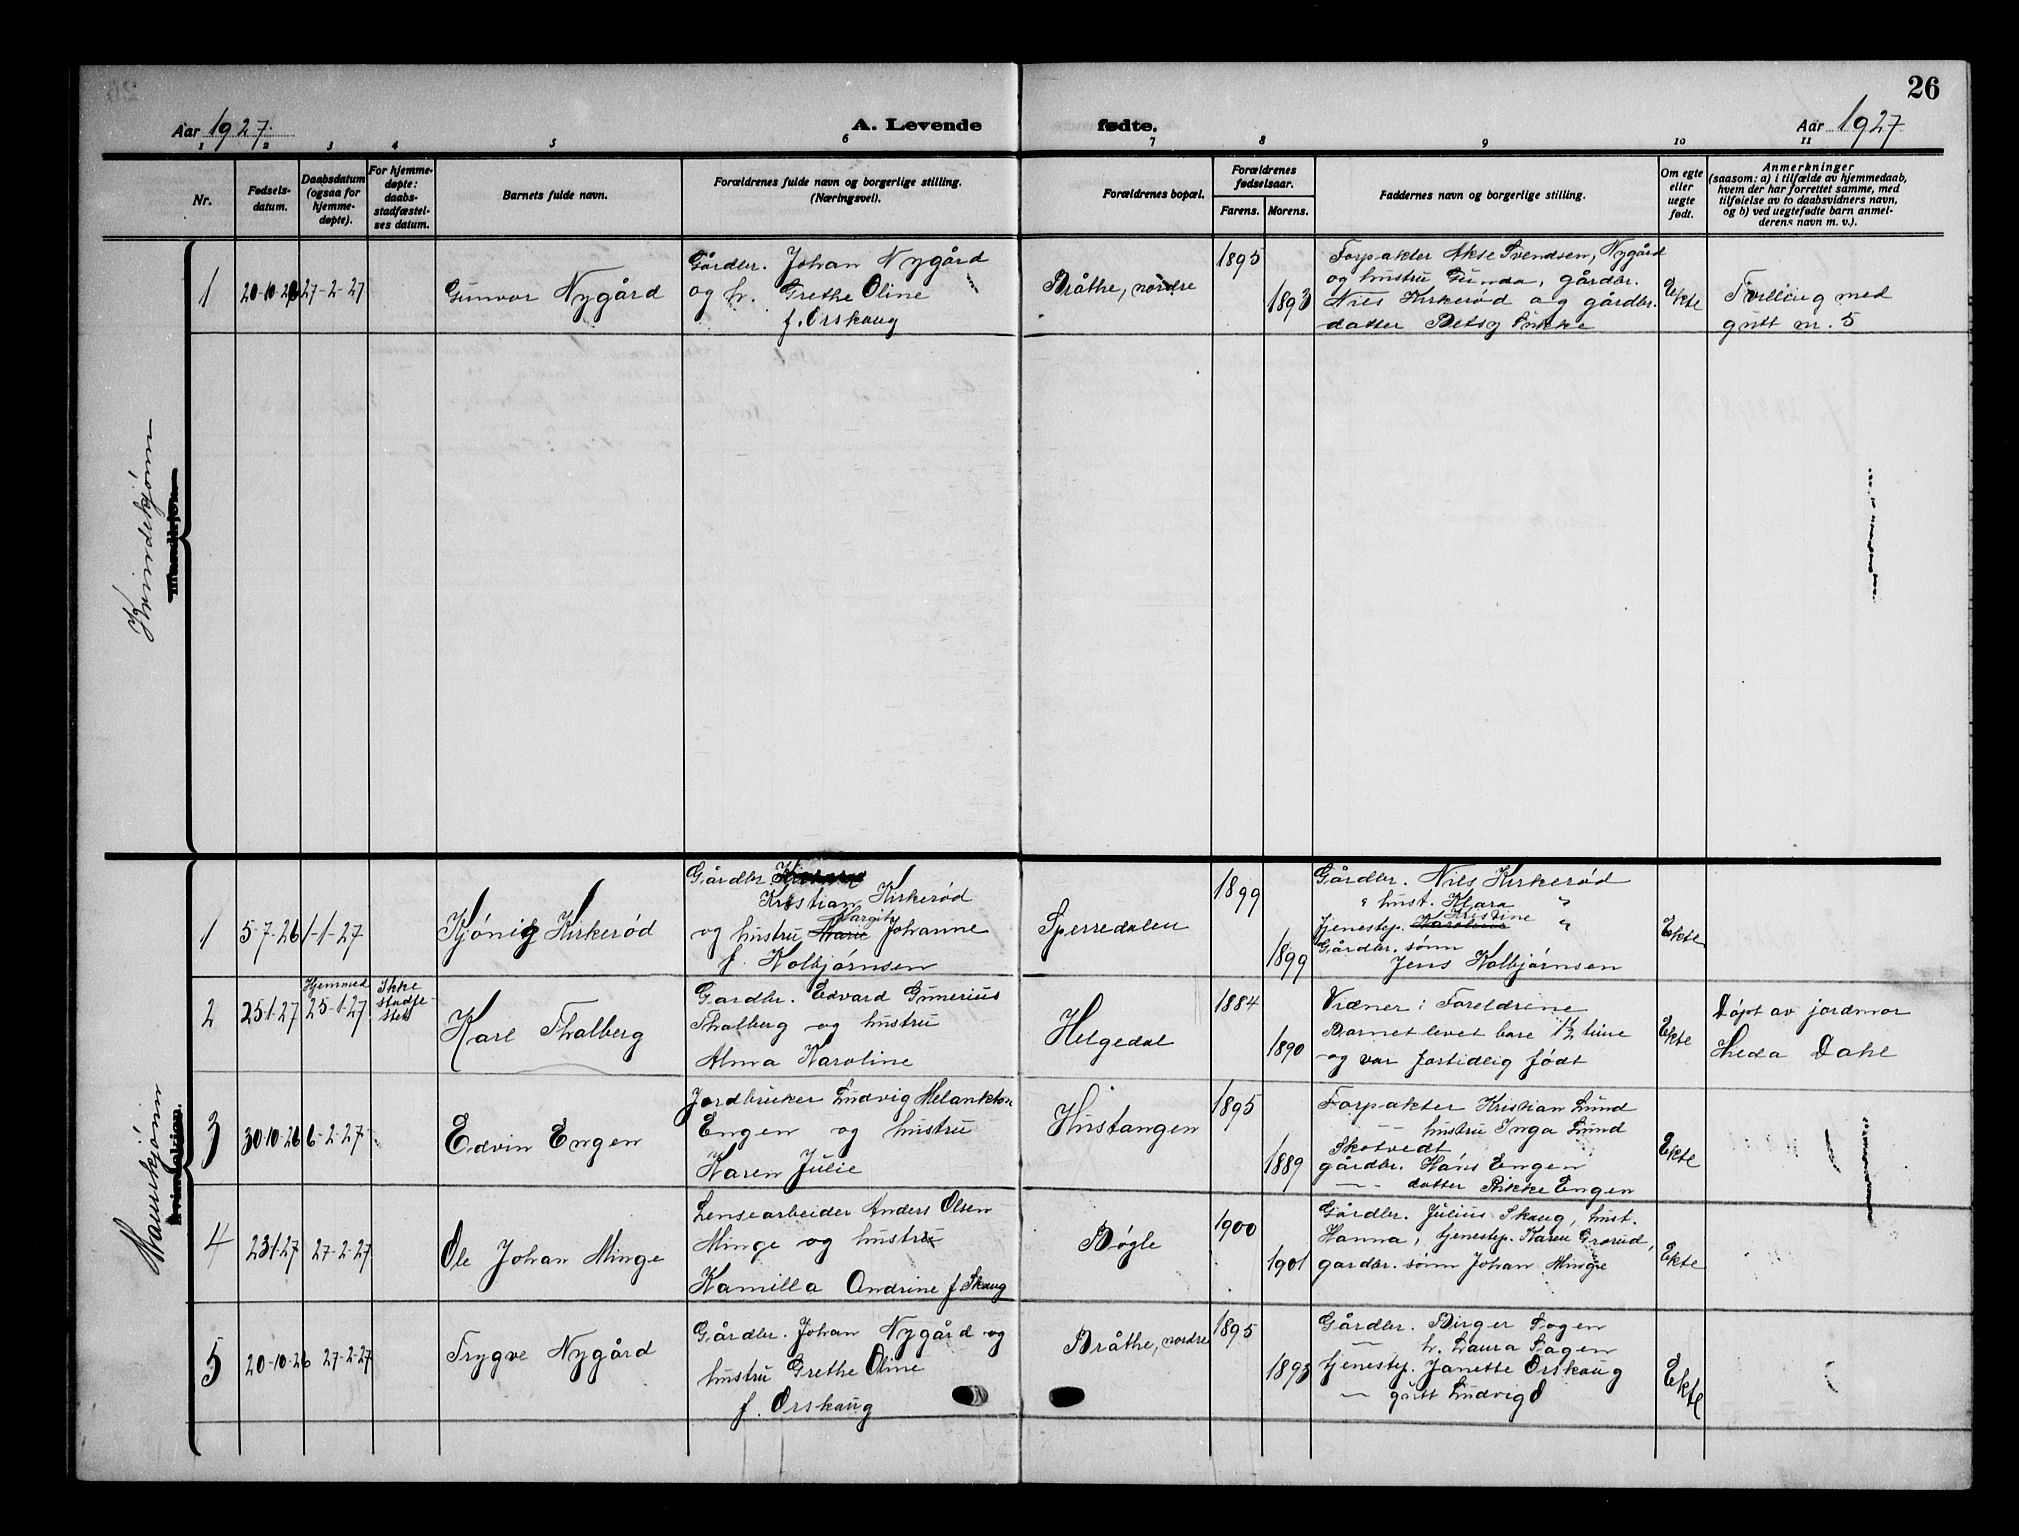 26
Aar 1927.
A. Levende
fødte.
Aar 1927
1 2 3 4 5 6 7 8 9 10 11
Nr.
Fødsels-
datum.
Daabsdatum
(ogsaa for
hjemme-
døpte).
For hjemme-
døpte:
daabs-
stadfæstel-
ses datum.
Barnets fulde navn.
Forældrenes fulde navn og borgerlige stilling.
(Næringsvei).
Forældrenes bopæl.
Forældrenes
fødselsaar.
Farens. Morens.
Faddernes navn og borgerlige stilling.
Om egte
eller
uegte
født.
Anmerkninger
(saasom: a) i tilfælde av hjemmedaab,
hvem der har forrettet samme, med
tilføielse av to daabsvidners navn,
og b) ved uegtefødte barn anmel-
derens navn m. v.).
Kvindekjøn
1
20-10-26
27-2-27
Gunvor Nygård
Gårdbr. Johan Nygård
og h. Grethe Oline
f. Orskaug
Bråthe, nordre
1895
1893
Forpakter Akse Svendsen, Nygård
og hustru Gunda, gårdbr.
Nils Kirkerød og gårdbr.
datter Betsy
Ekte
Tvilling med
gutt nr. 5
Mannskjønn
1
5-7-26
1-1-27
Kjönig Kirkerød
Gårdbr.
Kristian Kirkerød
Margit
og hustru Marie Johanne
f. Kolbjørnsen
Sperredalen
1899
1899
Gårdbr. Nils Kirkerød
" hust. Klara "
Kristine
tjenestep. Karoline "
Gårdbr. sønn
Jens Kolbjørnsen
Ekte
2
25-1-27
Hjemmed
25-1-27
Ikke
stadfe-
stet
Karl Thalberg
Gardbr. Edvard Gunerius
Thalberg og hustru
Alma Karoline
Helgedal
1884
1890
Vidner: Foreldrene
Barnet levet bare 1½ time
og var fortidlig født
Ekte
Döpt av jordmor
Heda Dahl
3
30-10-26
6-2-27
Edvin Engen
Jordbruker Ludvig Melankton
Engen og hustru
Karen Julie
Hustangen
1895
1889
Forpakter Kristian Lund
— hustru Inga Lund
Skotvedt
gårdbr. Hans Engen
— datter Rikke Engen
Ekte
4
23-1-27
27-2-27
Ole Johan Minge
Lensearbeider Anders Olsen
Minge og hustru
Kamilla Andrine f Skaug
Bögle
1900
1901
Gårdbr. Julius Skaug, hust.
Hanna, tjenestep. Karen Grorud,
gardbr. sönn Johan Minge
Ekte
5
20-10-26
27-2-27
Trygve Nygård
Gårdbr. Johan Nygård og
hustru Grethe Oline
f. Orskaug
Bråthe, nordre
1895
1893
Gårdbr. Birger Fagen
— h. Laura Fagen
tjenestep. Janette Orskaug
— gutt Ludvig O
Ekte